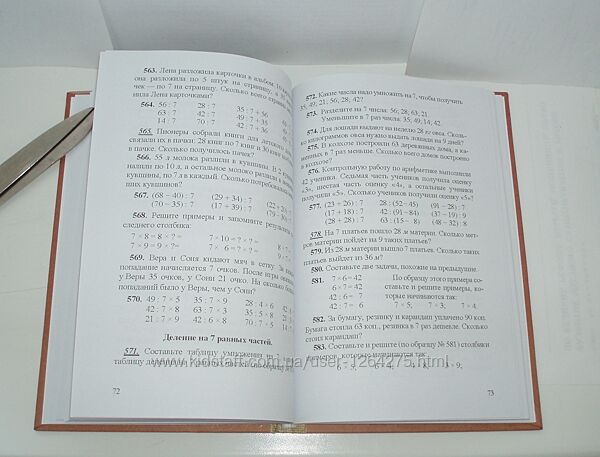 563. Лена разложила карточки в альбом.
она разложила по 5 штук на страницу, а
чек — по 7 на страницу. Сколько всего страниц
нила Лена карточками?
564. 56 : 7 28 : 7 35 : 7 + 56
63 : 7 42 : 7 49 : 7 +
14 : 7 70 : 7 42 : 7 + 36
565. Пионеры собрали книги для детского
связали их в пачки: 28 книг по 7 книг и 36 книг
в пачке. Сколько получилось пачек?
566. 55 л молока разлили в кувшины. В 2
налили по 10 л, а остальное молоко разлили в
кувшины, по 7 л в каждый. Сколько потребовалось
ших кувшинов?
567. (68 − 40) : 7 (29 + 34) : 7
(70 − 35) : 7 (17 + 39) : 7
568. Решите примеры и запомните результаты
следнего столбика:
7 × 8 = 8 × ? 7 × 10 = ? × ?
7 × 9 = 9 × ?
569. Вера и Соня кидают мяч в сетку. За
попадание начисляется 7 очков. После игры
у Веры 35 очков, у Сони 21 очко. На сколько
попаданий было у Веры, чем у Сони?
570. 49 : 7 × 5 35 : 7 × 9 28 : 4 × 6
42 : 7 × 8 63 : 7 × 3 35 : 5 × 8
21 : 7 × 9 42 : 6 × 8 70 : 7 × 5
Деление на 7 равных частей.
571. Составьте таблицу умножения и
таблицу деления на 7 равных частей (по образцу
72
572. Какие числа надо умножить на 7, чтобы получить
35; 49; 21; 56; 28; 42?
573. Разделите на 7 числа: 56; 28; 63; 21.
Уменьшите в 7 раз числа: 35; 49; 14; 42.
574. Для лошади выдают на неделю 28 кг овса. Сколь-
ко килограммов овса нужно выдать лошади на 9 дней?
575. В колхозе построили 63 деревянных дома, а ка-
менных в 7 раз меньше. Сколько всего домов построено
в колхозе?
576. Контрольную работу по арифметике выполняли
42 ученика. Седьмая часть учеников получила оценку
«3», шестая часть оценку «4», а остальные ученики
получили «5». Сколько учеников получили оценку «5»?
577. (23 + 26) : 7 28 : (52 − 45) (91 − 28) : 7
(17 + 18) : 7 42 : (91 − 84) (37 − 19) : 9
(28 + 28) : 7 63 : (15 − 8) (48 − 32) : 8
578. На 7 платьев пошло 28 м материи. Сколько мет-
ров материи пойдёт на 9 таких платьев?
579. Из 28 м материи вышло 7 платьев. Сколько таких
платьев выйдет из 36 м?
580. Составьте две задачи, похожие на предыдущие.
581. 7 × 6 = 42 По образцу этого примера со-
6 × 7 = 42 ставьте и решите примеры, ко-
42 : 6 = 7 торые начинаются так:
42 : 7 = 6 7 × 5; 7 × 3; 7 × 4
582. За бумагу, резинку и карандаш уплачено 90 коп.
Бумага стоила 63 коп., резинка в 7 раз дешевле. Сколько
стоил карандаш?
583. Составьте и решите (по образцу № 581) столбики
примеров, которые начинаются так:
73
www.kidstaff.com.ua/user-1264275.html